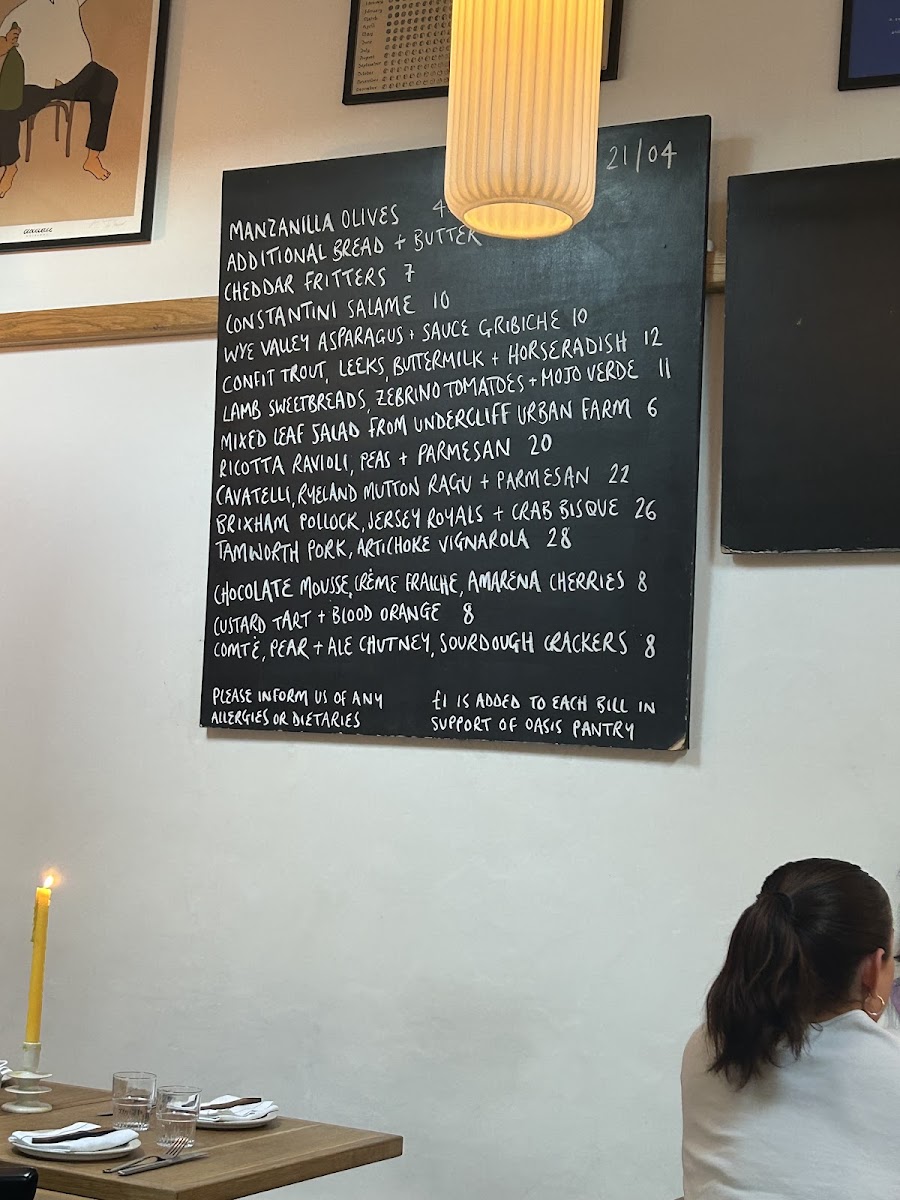 January
February
March
April
May
June
July
August
September
October
November
December
21/04
MANZANILLA OLIVES 4
ADDITIONAL BREAD + BUTTER
CHEDDAR FRITTERS 7
CONSTANTINI SALAME 10
WYE VALLEY ASPARAGUS + SAUCE GRIBICHE 10
CONFIT TROUT, LEEKS, BUTTERMILK + HORSERADISH 12
LAMB SWEETBREADS, ZEBRINO TOMATOES + MOJO VERDE 11
MIXED LEAF SALAD FROM UNDERCLIFF URBAN FARM 6
RICOTTA RAVIOLI, PEAS + PARMESAN 20
CAVATELLI, RYELAND MUTTON RAGU + PARMESAN 22
BRIXHAM POLLOCK, JERSEY ROYALS + CRAB BISQUE 26
TAMWORTH PORK, ARTICHOKE VIGNAROLA 28
CHOCOLATE MOUSSE, CRÈME FRAICHE, AMARENA CHERRIES 8
CUSTARD TART + BLOOD ORANGE 8
COMTÈ, PEAR + ALE CHUTNEY, SOURDOUGH CRACKERS 8
PLEASE INFORM US OF ANY
ALLERGIES OR DIETARIES
£1 IS ADDED TO EACH BILL IN
SUPPORT OF OASIS PANTRY